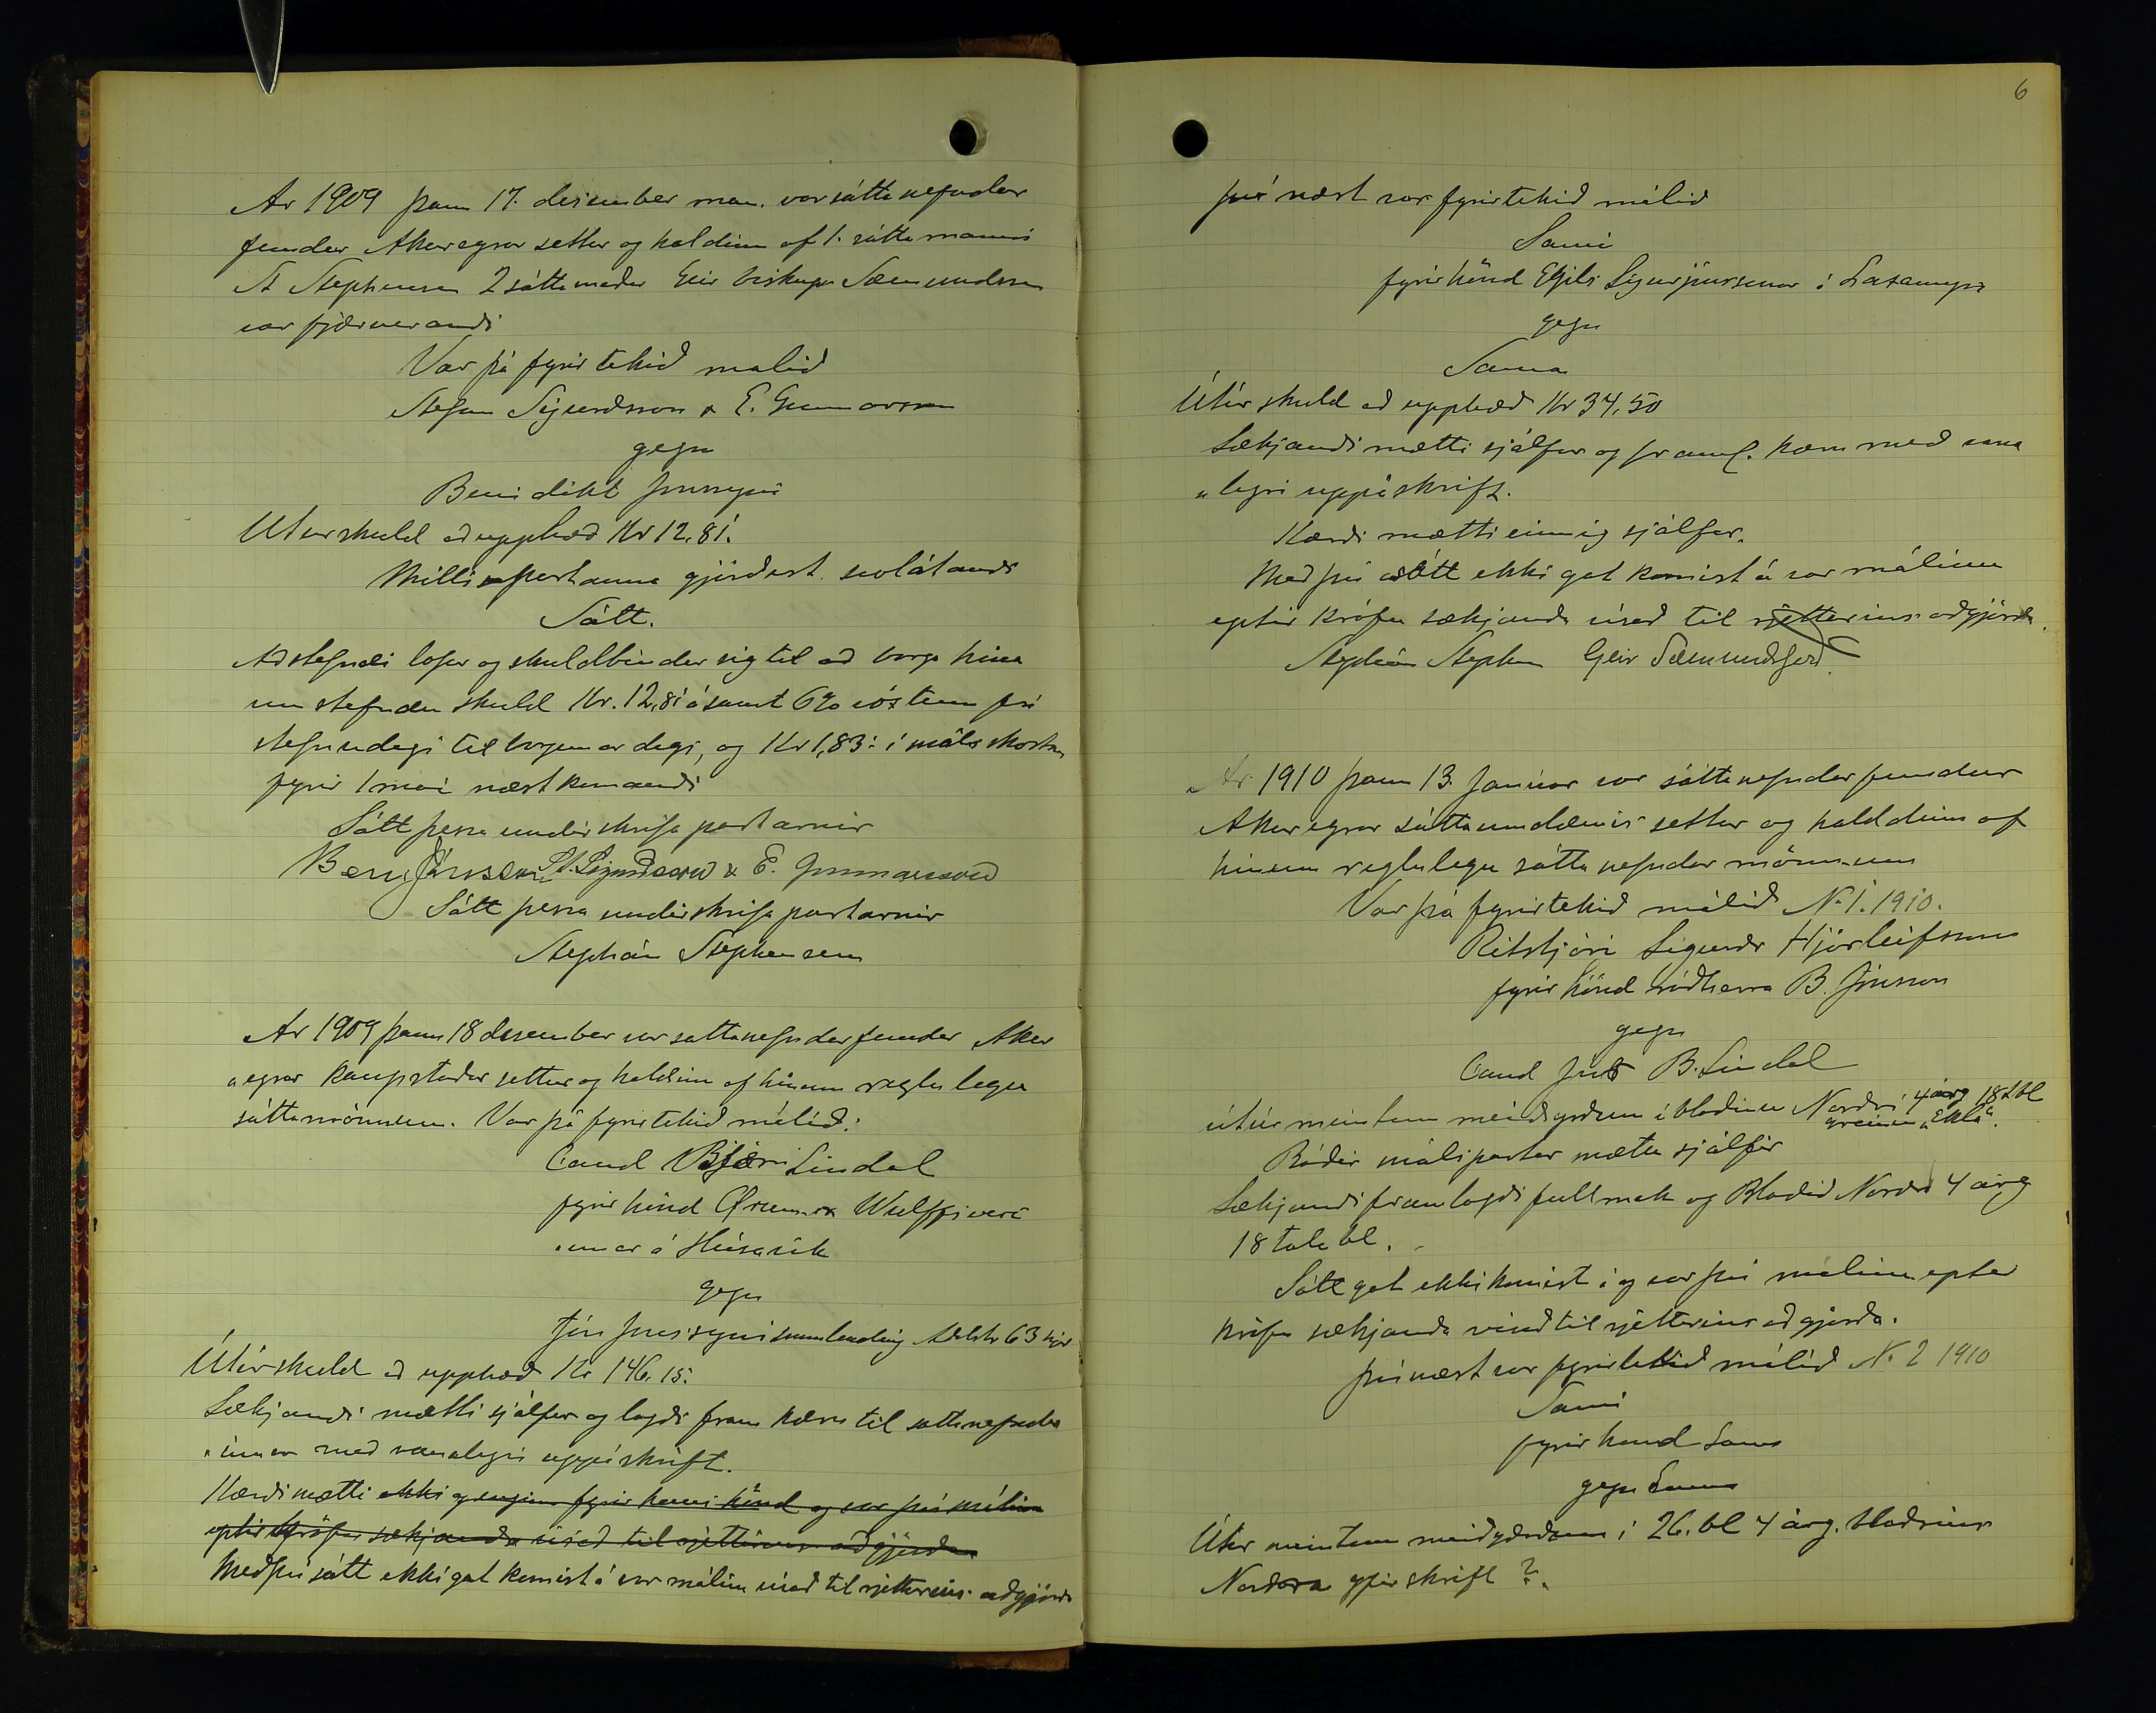 Ar 1909 þann 17. desember mán. var sátta nefndar
fundur Akureyrar settur og haldinn af 1. sátta manni
St Stephensen 2 sáttamaður Geir biskup Sæmundsson
var fjærverandi
Var þá fyrir tekið malið
Stefan Sigurdsson & E. Gunnarsson
gegn
Benidikt Jonssyni
Utur skuld að upphæð Kr 12,81.
Milli partanna gjörðist svolátandi
Sátt.
Aðstefndi lofar og skuldbindur sig til að borga hina
um stefndu skuld Kr. 12,81 ásamt 6% vöxtum frá
stefnudegi til borgunar dags, og Kr 1,83 í máls kostn
fyrir 1 maí næst komandi
Sátt þessa undirskrifa partarnir
Benj Jónsson St. Sigurdsson & E. Gunnarsson
Sátt þessa undirskrifa partarnir
Stephán Stephensen
Ar 1909 þann 18 desember var sattanefndarfundur Akur
„eyrar kaupstaðar settur og haldinn af hinum reglu legu
sáttamönnum. Var þá fyrirtekið málið:
Cand Björn Líndal
fyrir hönd Ørum & Wulffsverz
„unar á Húsavík
gegn
Jón Jónssyni sunnlending Aðalstr 63 hjer
Útúr skuld að upphæð Kr 146,15.
Sækjandi mætti sjálfur og lagði fram kæru til sattanefndar
„innar með vanalegri uppáskrift.
Kærði mætti ekki og enginn fyrir hans hönd og var því málinu
eptir kröfu sækjanda vísað til rjettarins aðgjörða
Með því sátt ekki gat komist á var málinu vísað til rjettarins aðgjörða
6
því næst var fyrirtekið málið
Sami
fyrir hönd Egils Sigurjónssonar í Laxamýri
gegn
Sama
Útúr skuld að upphæð Kr 34,50
Sækjandi mætti sjálfur og framl. kæru með vana
„legri uppáskrift.
Kærði mætti einnig sjálfur.
Með því sátt ekki gat komist á var málinu
eptir kröfu sækjanda vísað til rjettarins aðgjörða.
Stephán Stephensen Geir Sæmundsson
Ar 1910 þann 13. Janúar var sáttanefndarfundur
Akureyrar sáttaumdæmis settur og halddinn af
hinum reglulegu sátta nefndar mönnum
Var þá fyrirtekið málið No 1. 1910.
Ritstjóri Sigurður Hjörleifsson
fyrir hönd ráðherra B. Jónsson
gegn
Cand Juris B. Líndal
útúr meintum meiðyrðum í blaðinu Norðri 4 árg 18 tbl
greinin „Ekla“.
Báðir málspartar mættu sjálfir
Sækjandi framlagði fullmakt og Blaðið Norðri 4 árg
18 tölubl.
Sátt gat ekki komist á og var því málinu eptir
kröfu sækjanda vísað til rjettarins aðgjörða.
því næst var fyrirtekið málið No 2 1910
Sami
fyrir hönd Sama
gegn Sama
Útúr meintum meiðyrðum í 26. bl 4 árg. blaðsins
Norðra yfirskrift ?.